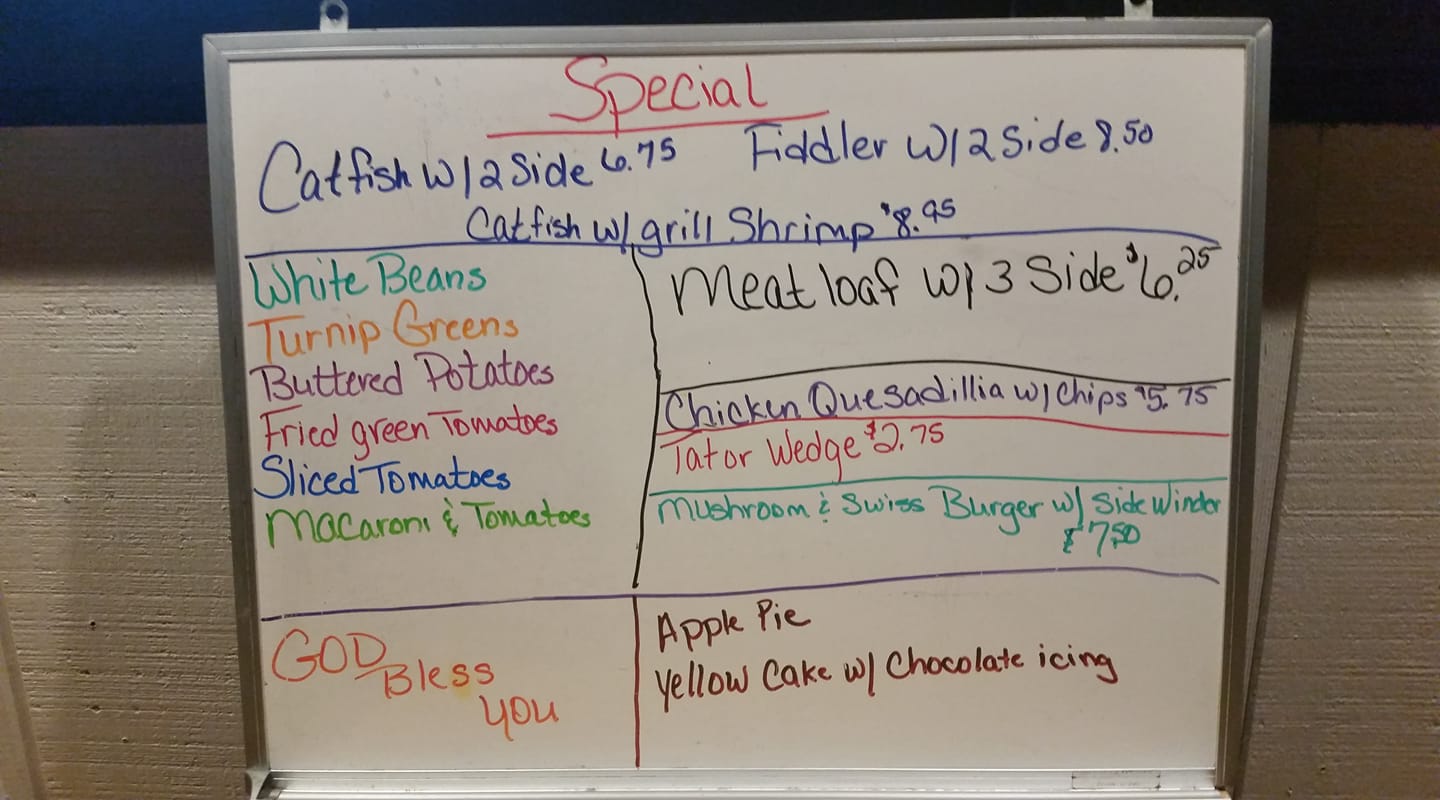 Special
Catfish w/2 Side 6.75 Fiddler w/2 Side 8.50
Catfish w/ grill Shrimp $8.95
White Beans
Turnip Greens
Buttered Potatoes
Fried green Tomatoes
Sliced Tomatoes
Macaroni & Tomatoes
Meat loaf w/ 3 Side $6.25
Chicken Quesadillia w/ Chips $5.75
Tator Wedge $2.75
Mushroom & Swiss Burger w/ Side Winder
$7.50
GOD
Bless
you
Apple Pie
Yellow Cake w/ Chocolate icing